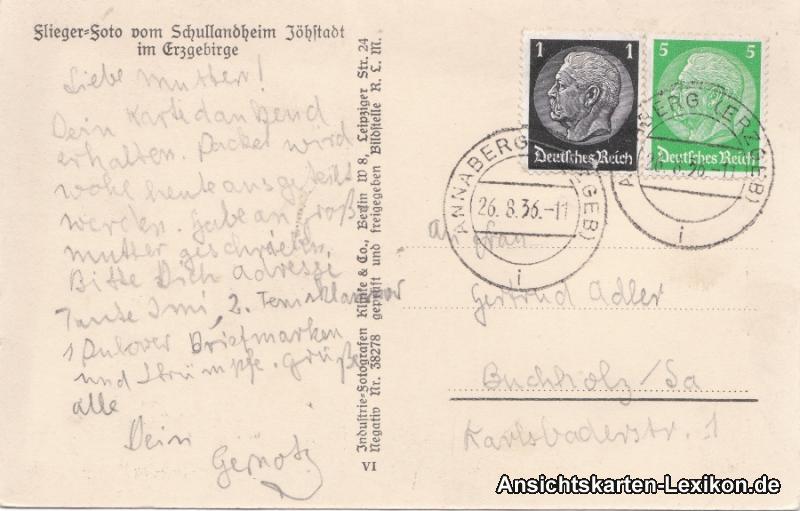 Flieger=Foto vom Schullandheim Jöhstadt
im Erzgebirge
Liebe Mutter!
Dein Karte dankend
erhalten. Packet wird
wohl heute ausgeteilt
werden. Habe an Groß
mutter geschrieben.
Bitte Dich Adresse
Tante Irmi, 2.
1 Pulover Briefmarken
und Strümpfe. Grüße
alle
Dein
Gernot
Industrie=Fotografen Klinke & Co., Berlin W 8, Leipziger Str. 24
Negativ Nr. 38278 geprüft und freigegeben Bildstelle R. L. M.
VI
1 1
Deutsches Reich
5 5
Deutsches Reich
ANNABERG (ERZGEB)
26.8.36.-11
i
ANNABERG (ERZGEB)
26.8.36.-11
i
An Frau
Gertrud Adler
Buchholz/Sa
Karlsbaderstr. 1
Ansichtskarten-Lexikon.de